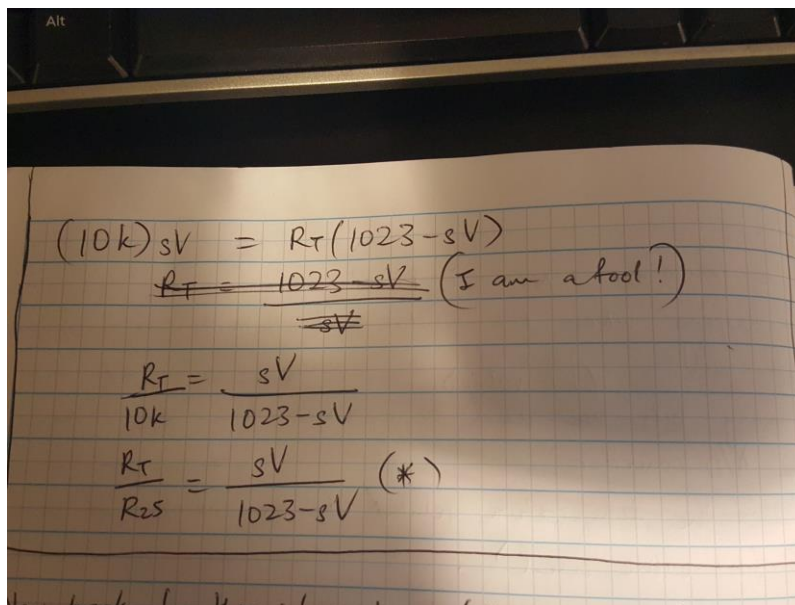 Alt
(10k) sV = RT (1023-sV)
RT = 1023-sV (I am a fool!)
sV
RT = sV
10k 1023-sV
RT = sV (*)
R25 1023-sV